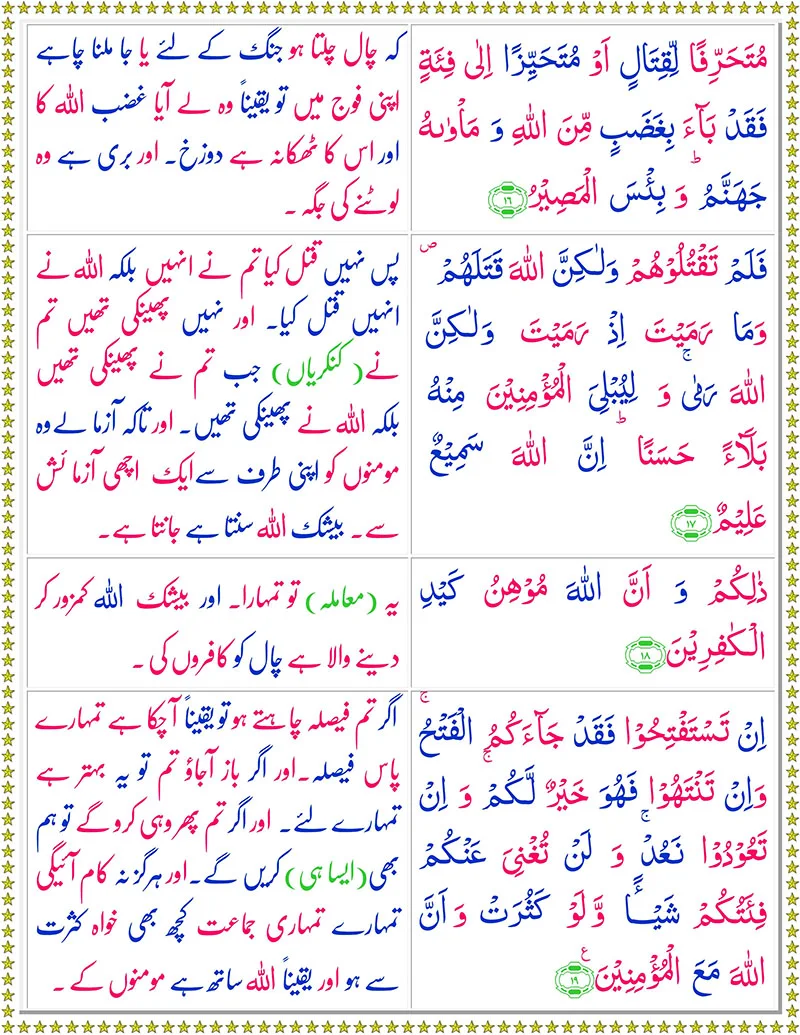 مُتَحَرِّفًا لِّقِتَالٍ اَوْ مُتَحَيِّزًا اِلٰى فِئَةٍ
فَقَدْ بَآءَ بِغَضَبٍ مِّنَ اللهِ وَ مَاْوٰىهُ
جَهَنَّمُ ؕ وَ بِئْسَ الْمَصِيْرُ ١٦
کہ چال چلتا ہو جنگ کے لئے یا جا ملنا چاہے
اپنی فوج میں تو یقیناً وہ لے آیا غضب اللہ کا
اور اس کا ٹھکانہ ہے دوزخ۔ اور بری ہے وہ
لوٹنے کی جگہ ۔
فَلَمْ تَقْتُلُوْهُمْ وَلٰكِنَّ اللهَ قَتَلَهُمْ ۪
وَمَا رَمَيْتَ اِذْ رَمَيْتَ وَلٰكِنَّ
اللهَ رَمٰى ۚ وَ لِيُبْلِىَ الْمُؤْمِنِيْنَ مِنْهُ
بَلَآءً حَسَنًا ؕ اِنَّ اللهَ سَمِيْعٌ
عَلِيْمٌ ١٧
پس نہیں قتل کیا تم نے انہیں بلکہ اللہ نے
انہیں قتل کیا۔ اور نہیں پھینکی تھیں تم
نے (کنکریاں) جب تم نے پھینکی تھیں
بلکہ اللہ نے پھینکی تھیں۔ اور تاکہ آزما لے وہ
مومنوں کو اپنی طرف سے ایک اچھی آزمائش
سے۔ بیشک اللہ سنتا ہے جانتا ہے۔
ذٰلِكُمْ وَ اَنَّ اللهَ مُوْهِنُ كَيْدِ
الْكٰفِرِيْنَ ١٨
یہ (معاملہ) تو تمہارا۔ اور بیشک اللہ کمزور کر
دینے والا ہے چال کو کافروں کی ۔
اِنْ تَسْتَفْتِحُوْا فَقَدْ جَآءَكُمُ الْفَتْحُ ۚ
وَاِنْ تَنْتَهُوْا فَهُوَ خَيْرٌ لَّكُمْ ۚ وَ اِنْ
تَعُوْدُوْا نَعُدْ ۚ وَ لَنْ تُغْنِىَ عَنْكُمْ
فِئَتُكُمْ شَيْـًٔا وَّ لَوْ كَثُرَتْ وَ اَنَّ
اللهَ مَعَ الْمُؤْمِنِيْنَ ١٩ ع
اگر تم فیصلہ چاہتے ہو تو یقیناً آ چکا ہے تمہارے
پاس فیصلہ۔ اور اگر باز آجاؤ تم تو یہ بہتر ہے
تمہارے لئے۔ اور اگر تم پھر وہی کرو گے تو ہم
بھی (ایسا ہی) کریں گے۔ اور ہرگز نہ کام آئیگی
تمہارے تمہاری جماعت کچھ بھی خواہ کثرت
سے ہو اور یقیناً اللہ ساتھ ہے مومنوں کے ۔